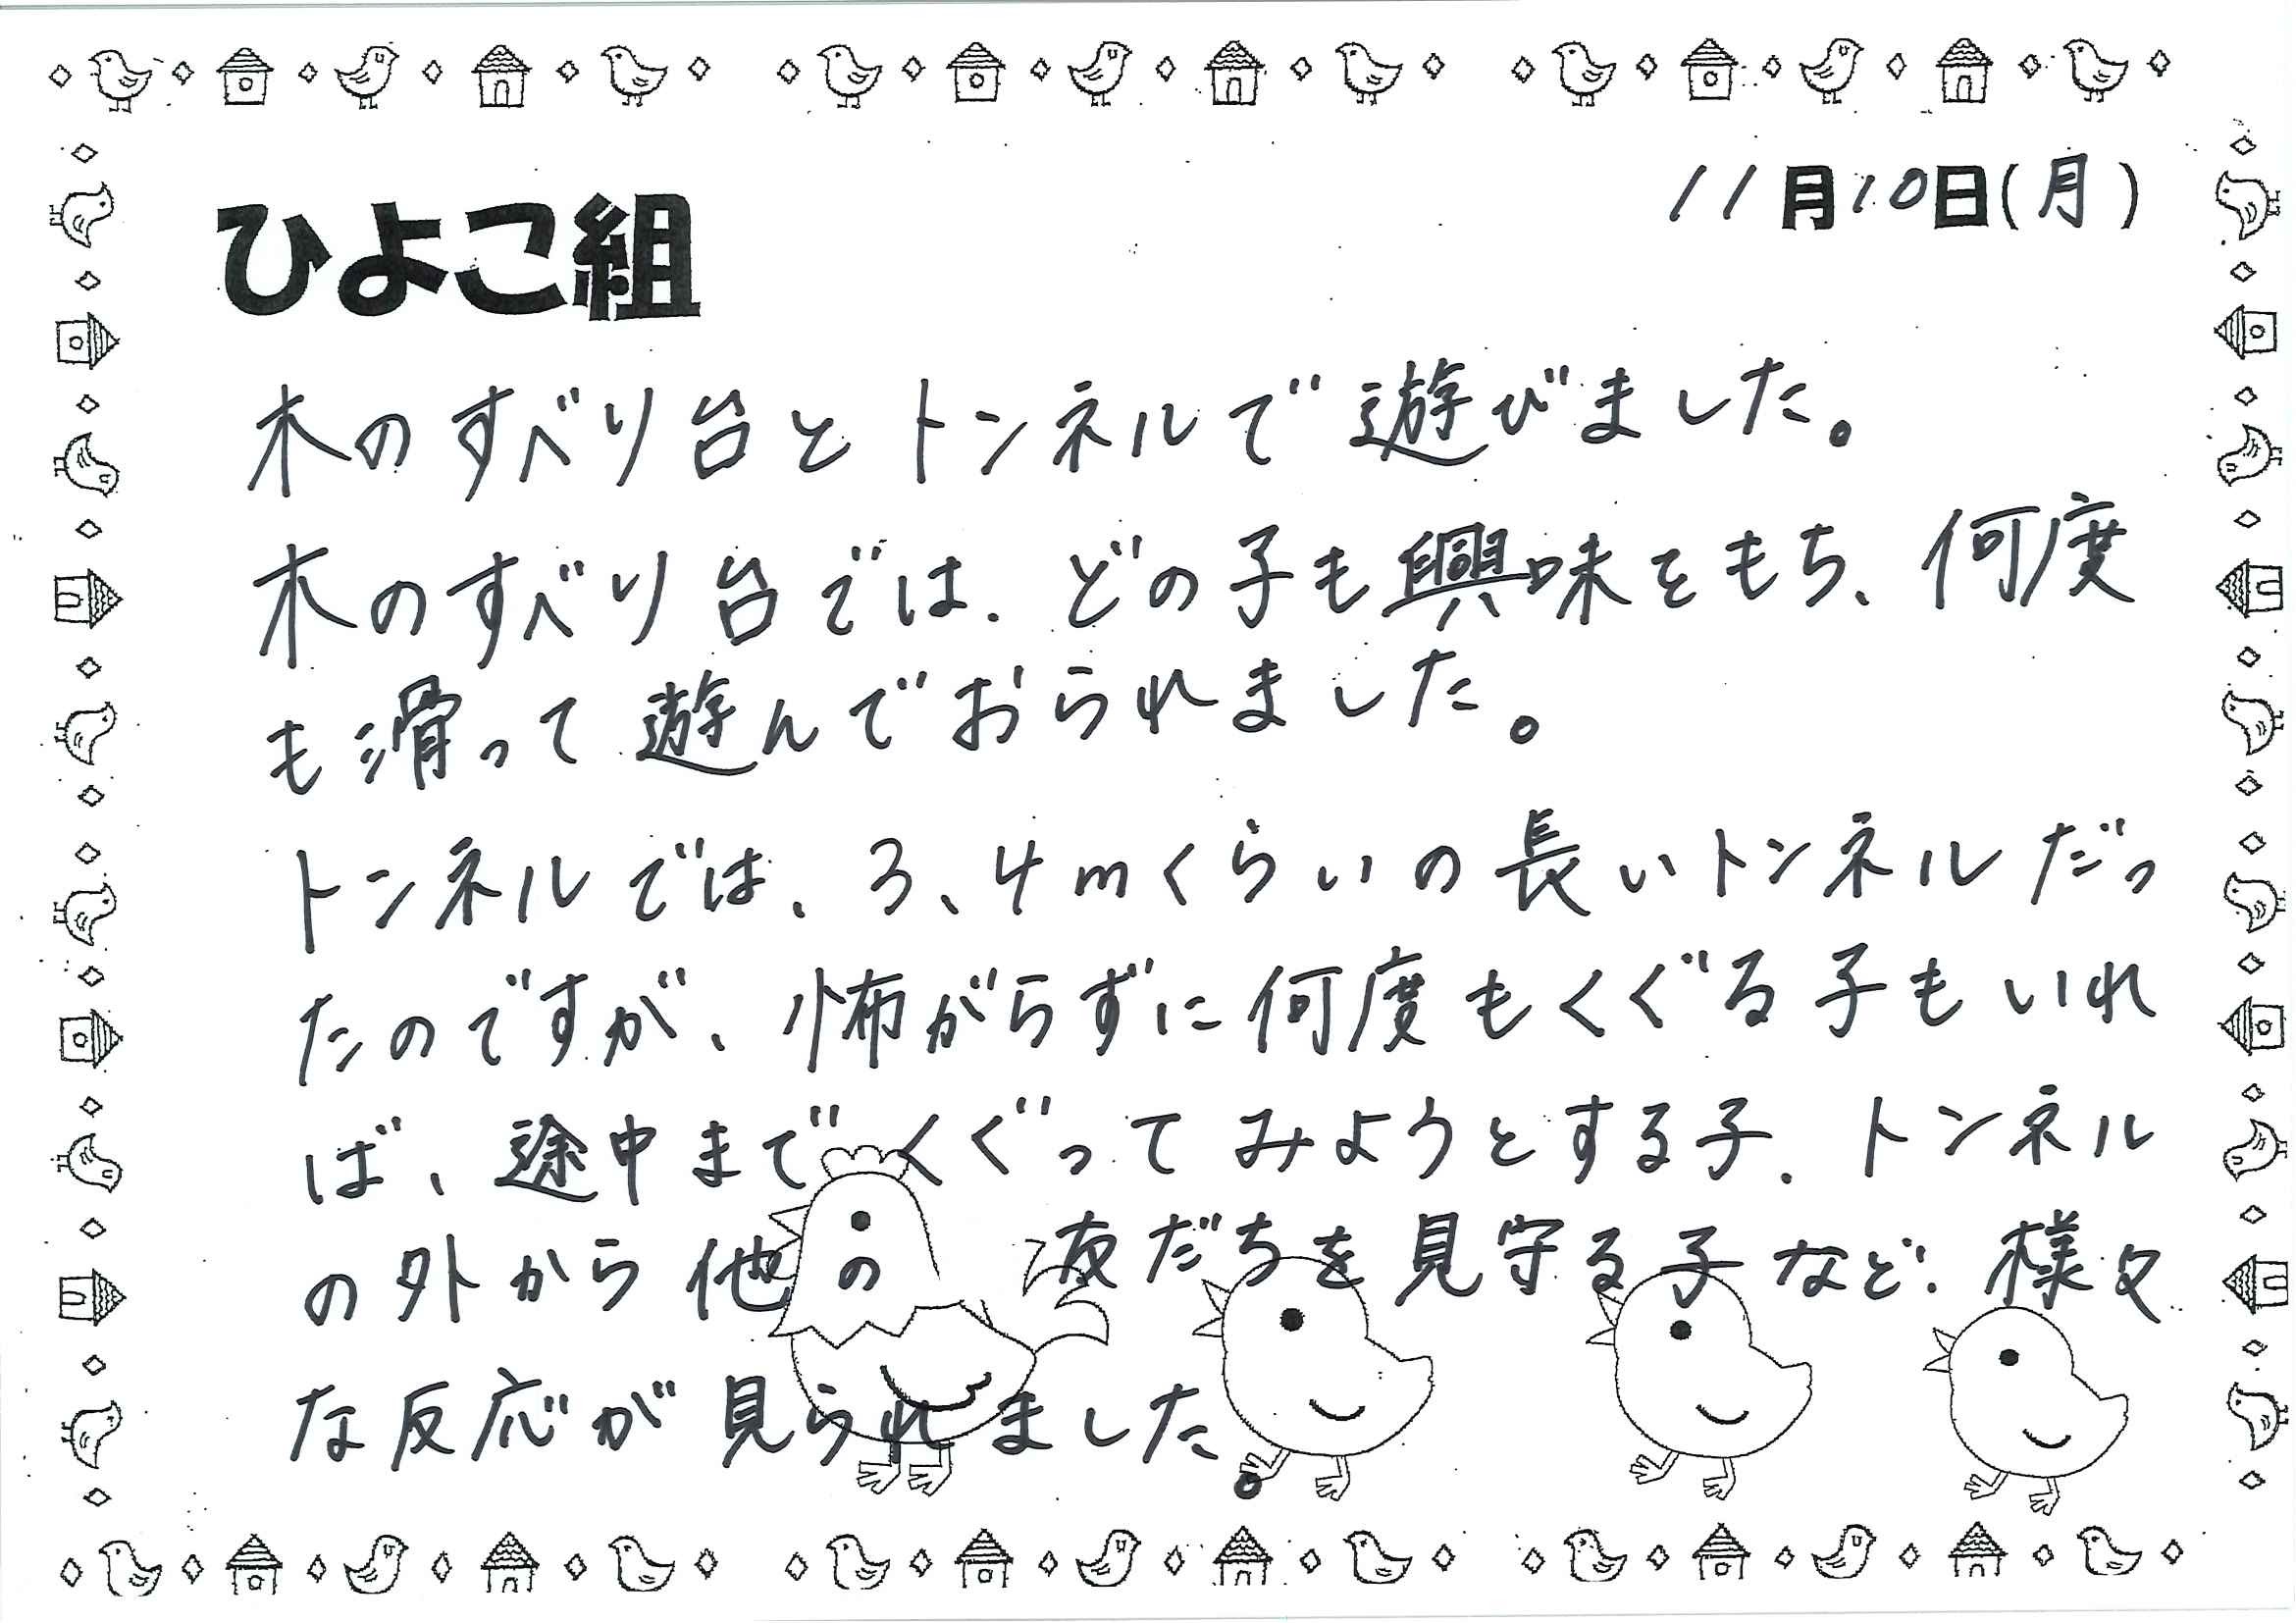 11月10日(月)
ひよこ組
木のすべり台とトンネルで遊びました。
木のすべり台では、どの子も興味をもち、何度
も滑って遊んでおられました。
トンネルでは、3、4mくらいの長いトンネルだっ
たのですが、怖がらずに何度もくぐる子もいれ
ば、途中までくぐってみようとする子、トンネル
の外から他の友だちを見守る子など、様々
な反応が見られました。